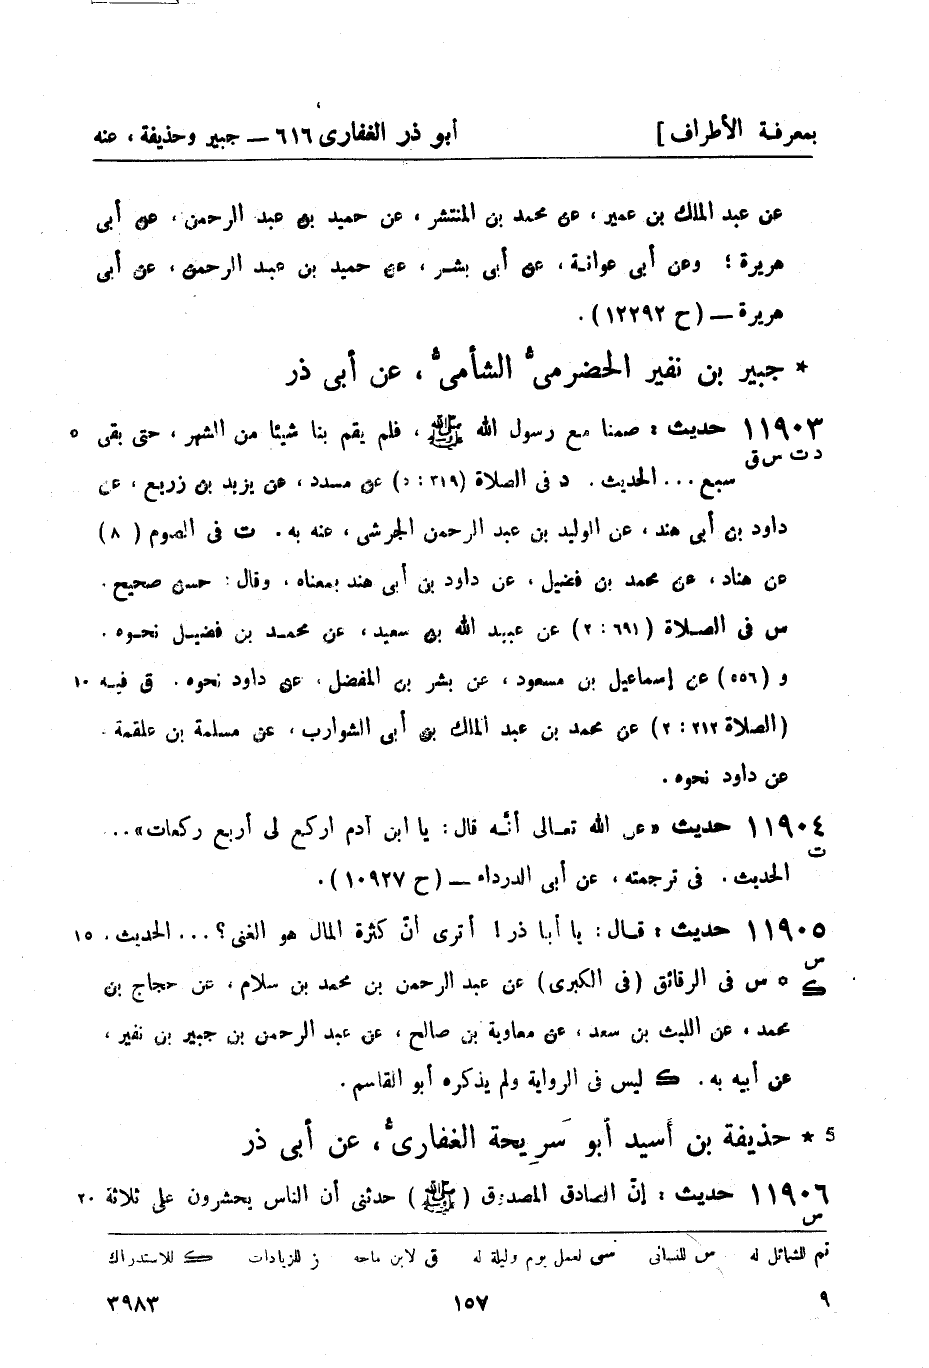 بمعرفة الأطراف] أبو ذر الغفارى ٦١٦ — جبير وحذيفة ، عنه
عن عبد الملك بن عمير ، عن محمد بن المنتشر ، عن حميد بن عبد الرحمن ، عن أبى
هريرة ؛ وعن أبى عوانة ، عن أبى بشر ، عن حميد بن عبد الرحمن ، عن أبى
هريرة — (ح ١٢٢٩٢) .
* جبير بن نفير الحضرمىُّ الشأمىُّ ، عن أبى ذر
١١٩٠٣ حديث : صمنا مع رسول الله ﷺ ، فلم يقم بنا شيئا من الشهر ، حتى بقى ٥
د ت س ق
سبع ... الحديث . د فى الصلاة (٣١٩ : ٥) عن مسدد ، عن يزيد بن زريع ، عن
داود بن أبى هند ، عن الوليد بن عبد الرحمن الجرشى ، عنه به . ت فى الصوم ( ٨)
عن هناد ، عن محمد بن فضيل ، عن داود بن أبى هند بمعناه ، وقال : حسن صحيح .
س فى الصلاة (٦٩١ : ٢) عن عبيد الله بن سعيد ، عن محمد بن فضيل نحوه .
و (٥٥٦) عن إسماعيل بن مسعود ، عن بشر بن المفضل ، عن داود نحوه . ق فيه ١٠
(الصلاة ٢١٢ : ٢) عن محمد بن عبد الملك بن أبى الشوارب ، عن مسلمة بن علقمة .
عن داود نحوه .
١١٩٠٤ حديث «عن الله تعالى أنَّه قال : يا ابن آدم اركع لى أربع ركعات» ...
ت
الحديث . فى ترجمته ، عن أبى الدرداء — (ح ١٠٩٢٧) .
١١٩٠٥ حديث : قال : يا أبا ذر ! أترى أنّ كثرة المال هو الغنى ؟ ... الحديث . ١٥
س
ك ٥ س فى الرقائق (فى الكبرى) عن عبد الرحمن بن محمد بن سلام ، عن حجاج بن
محمد ، عن الليث بن سعد ، عن معاوية بن صالح ، عن عبد الرحمن بن جبير بن نفير ،
عن أبيه به . ك ليس فى الرواية ولم يذكره أبو القاسم .
5 * حذيفة بن أَسيد أبو سَرِيحة الغفارىُّ ، عن أبى ذر
١١٩٠٦ حديث : إنّ الصادق المصدوق (ﷺ) حدثنى أن الناس يحشرون على ثلاثة ٢٠
س
تم للشمائل له س للنسائى سى لعمل يوم وليلة له ق لابن ماجه ز للزيادات ك للاستدراك
٩ ١٥٧ ٣٩٨٣